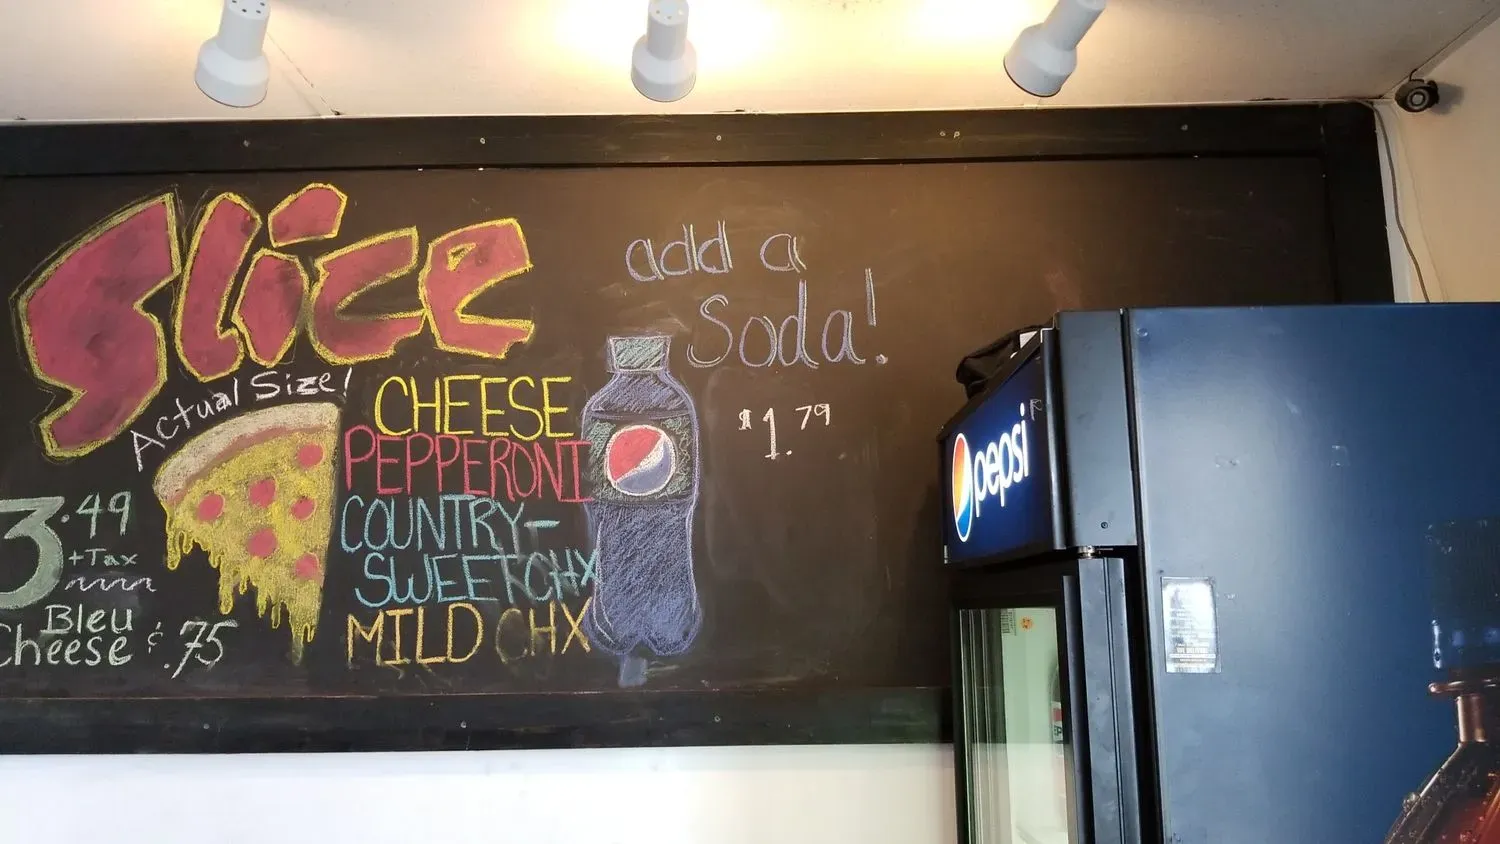 Slice
Actual Size!
CHEESE
PEPPERONI
COUNTRY-
SWEET CHX
MILD CHX
3.49
+Tax
Bleu
Cheese $.75
add a
Soda!
$1.79
pepsi